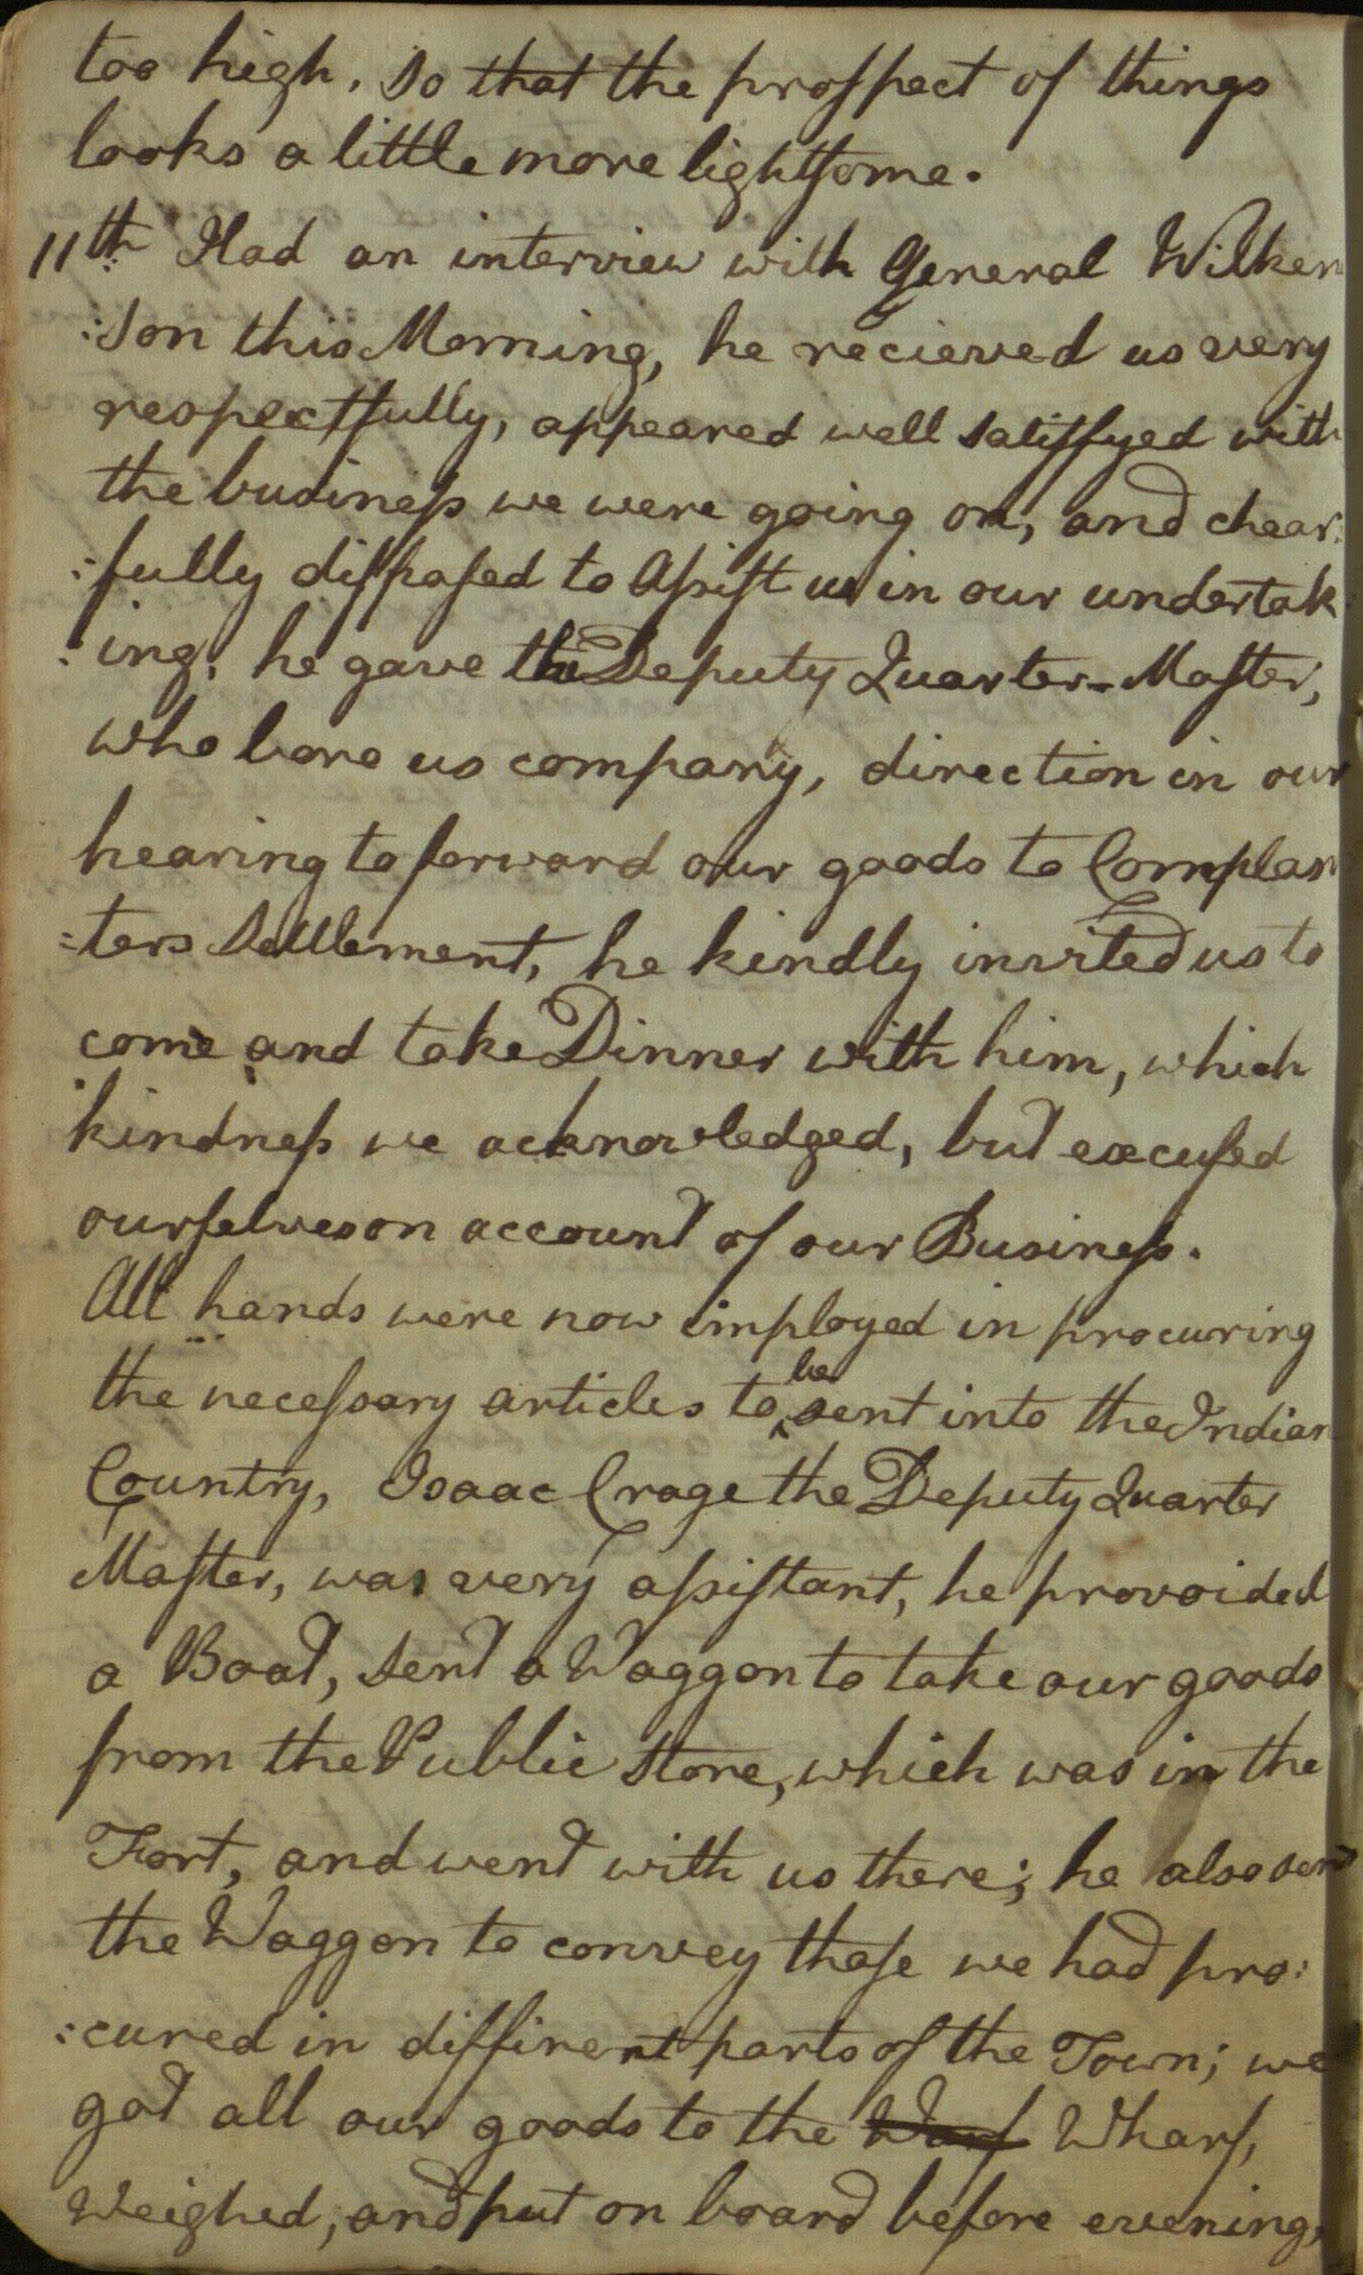 too high, so that the prospect of things
looks a little more lightsome.
11th Had an interview with General Wilken
:son this Morning, he recieved us very
respectfully, appeared well satisfyed with
the business we were going on, and chear:
:fully disposed to Assist us in our undertak
:ing, he gave the Deputy Quarter-Master,
who bore us company, direction in our
hearing to forward our goods to Cornplan
:ters Settlement, he kindly invited us to
come and take Dinner with him, which
kindness we acknowledged, but excused
ourselves on account of our Business.
All hands were now imployed in procuring
the necessary articles to be sent into the Indian
Country, Isaac Crage the Deputy Quarter
Master, was very assistant, he provoided
a Boat, sent a Waggon to take our goods
from the Public Store, which was in the
Fort, and went with us there; he also sent
the Waggon to convey those we had pro:
:cured in diffirent parts of the Town; we
got all our goods to the Warf Wharf,
Weighed, and put on board before evening,